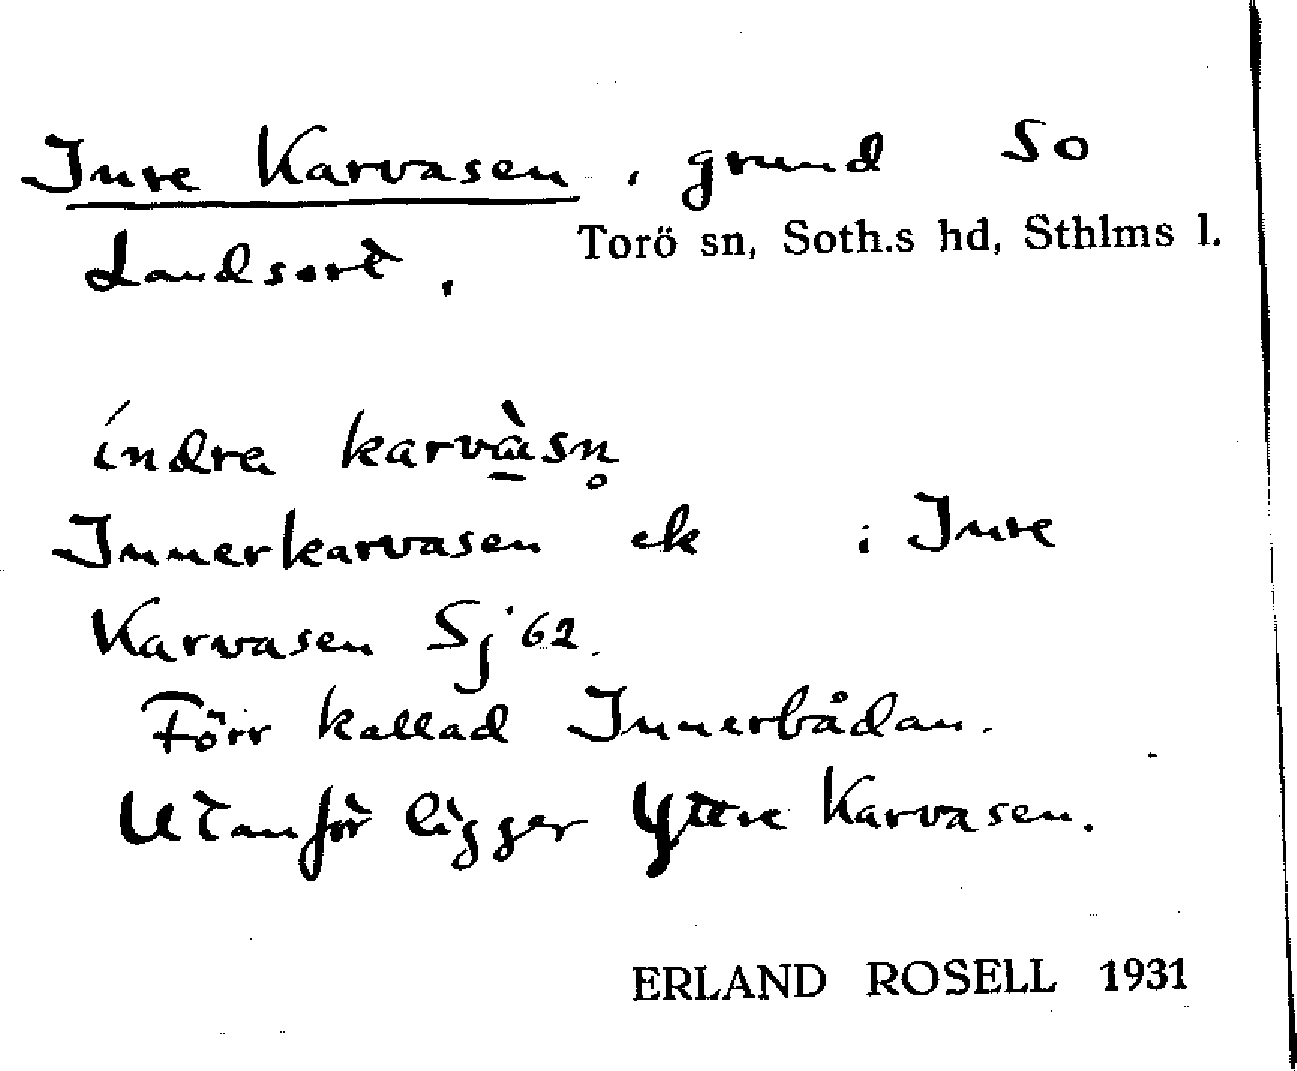 Inre Karvasen, grund SO
Torö sn, Soth.s hd, Sthlms l.
Landsort.
índra karvàsn̥
Innerkarvasen ek i Inre
Karvasen Sj 62.
Förr kallad Innerbådan.
Utanför ligger Yttre Karvasen.
ERLAND ROSELL 1931